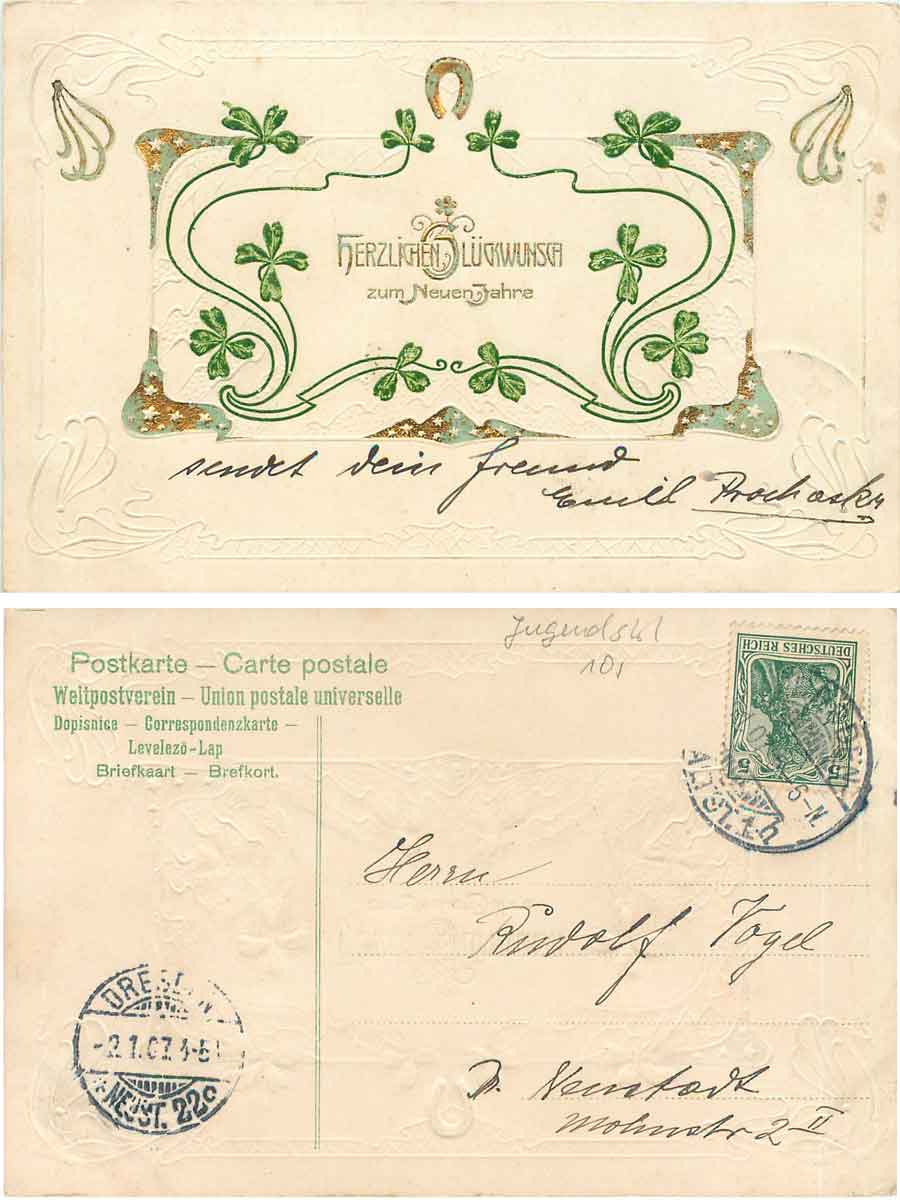 Herzlichen Glückwunsch
zum Neuen Jahre
sendet dein Freund
Emil Prochaska
Jugendstil
10,
Postkarte – Carte postale
Weltpostverein – Union postale universelle
Dopisnice – Correspondenzkarte –
Levelező-Lap
Briefkaart – Brefkort.
DEUTSCHES REICH
5 5
DRESDEN
ALTST.
6-N
Herrn
Rudolf Vogel
D. Neustadt
Mohnstr 2 II
DRESDEN
-2.1.07.
NEUST. 22